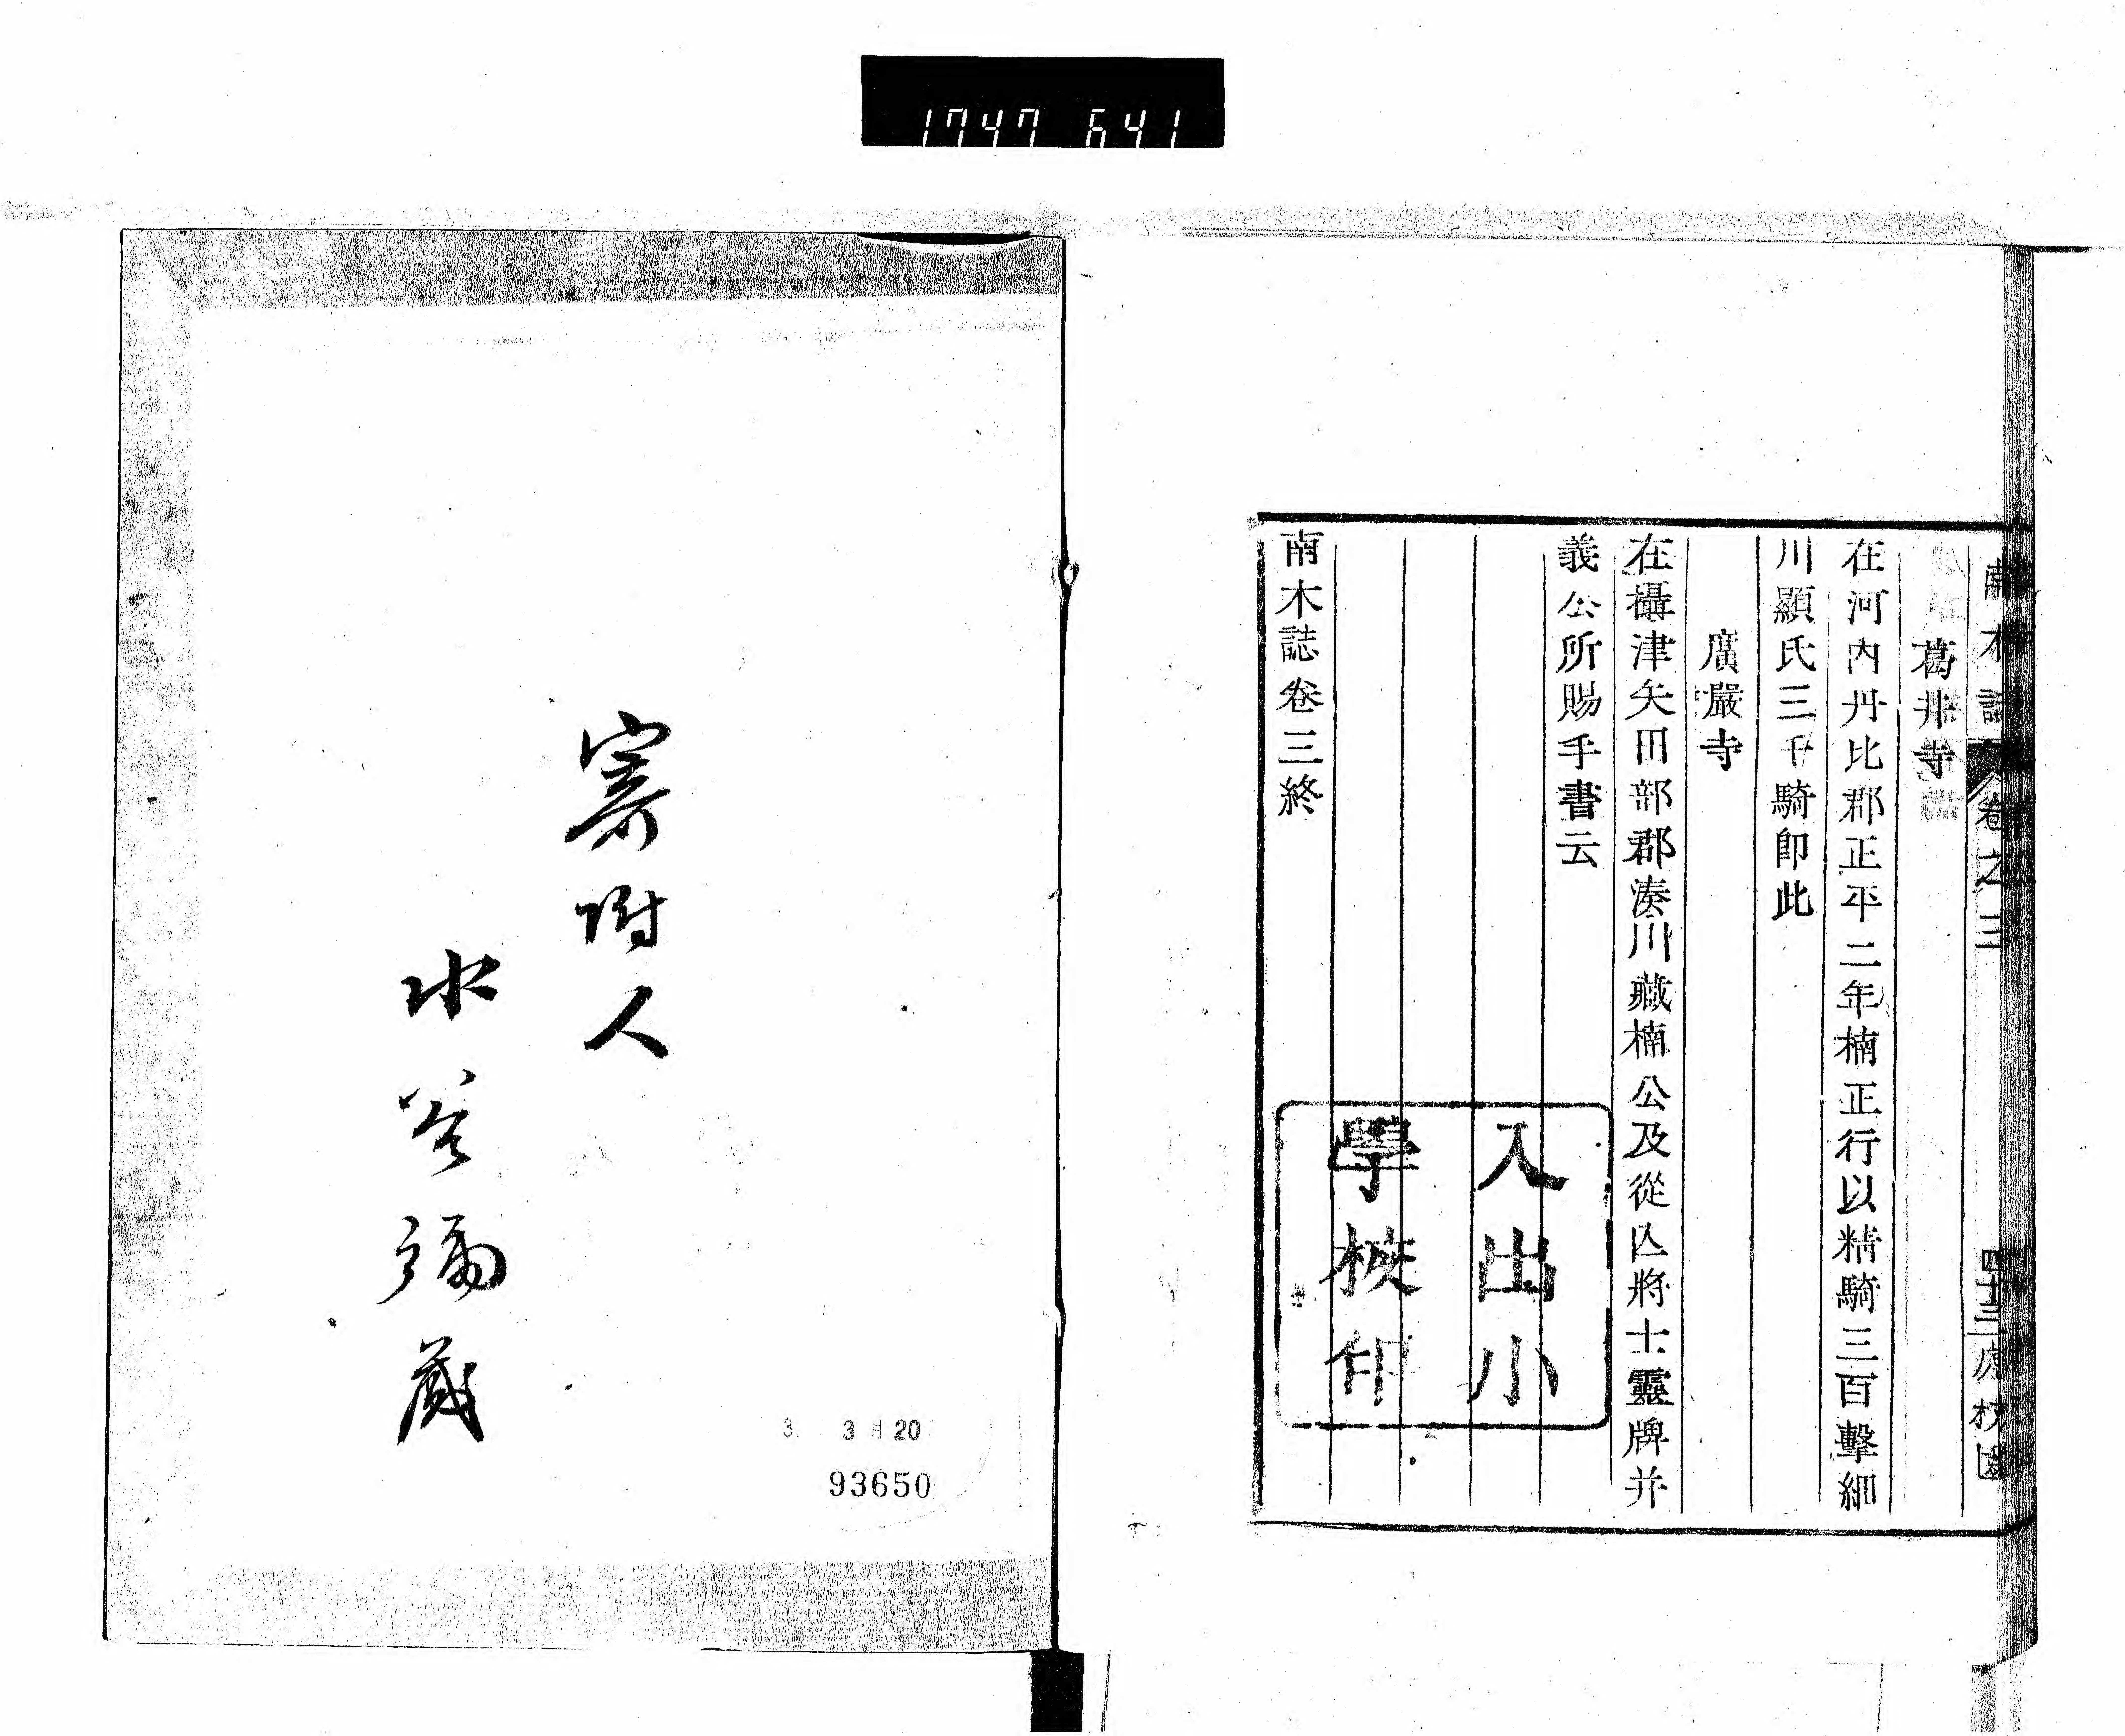 1747 641
南木誌 卷之三 四十三
葛井寺
在河內丹比郡正平二年楠正行以精騎三百擊細
川顯氏三千騎卽此
廣嚴寺
在攝津矢田部郡湊川藏楠公及從亾將士靈牌并
義公所賜手書云
南木誌卷三終
入出小
學校印
寄附人
水谷彌藏
3. 3月20
93650